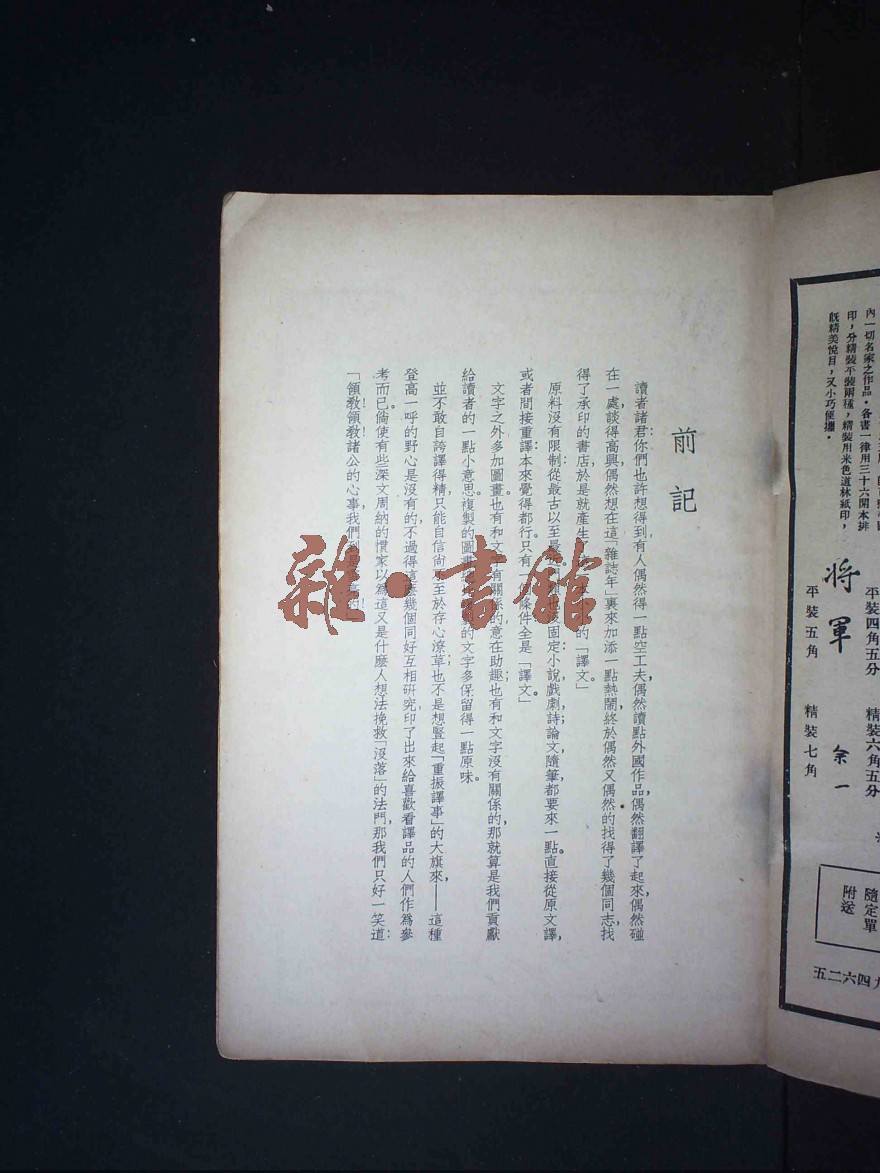 內一切名家之作品。各書一律用三十六開本排
印，分精裝平裝兩種，精裝用米色道林紙印，
既精美悅目，又小巧便攜。
平裝四角五分 精裝六角五分
將軍 余一
平裝五角 精裝七角
隨定單
附送
五二六四
前記
讀者諸君：你們也許想得到，有人偶然得一點空工夫，偶然讀點外國作品，偶然翻譯了起來，偶然碰
在一處，談得高興，偶然想在這「雜誌年」裏來加添一點熱鬧，終於偶然又偶然的找得了幾個同志，找
得了承印的書店，於是就產生 小小的「譯文」。
原料沒有限制：從最古以至最 固定：小說，戲劇，詩，論文，隨筆，都要來一點。直接從原文譯，
或者間接重譯：本來覺得都行。只有一個條件：全是「譯文」。
文字之外，多加圖畫。也有和文字有關係的，意在助趣；也有和文字沒有關係的，那就算是我們貢獻
給讀者的一點小意思。複製的圖畫 的文字多保留得一點原味。
並不敢自誇譯得精，只能自信尚不至於存心潦草；也不是想豎起「重振譯事」的大旗來，——這種
登高一呼的野心是沒有的，不過得這麼幾個同好互相研究，印了出來給喜歡看譯品的人們作為參
考而已。倘使有些深文周納的慣家以為這又是什麼人想法挽救「沒落」的法門，那我們只好一笑道：
「領教！領教！諸公的心事，我們倒是 的！」
雜·書館